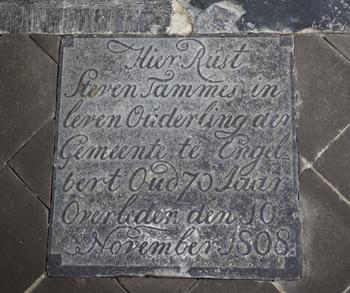 Hier Rust
Steven Tammes in
leven Ouderling der
Gemeente te Engel=
bert Oud 70 Jaar
Overleden den 10
November 1808